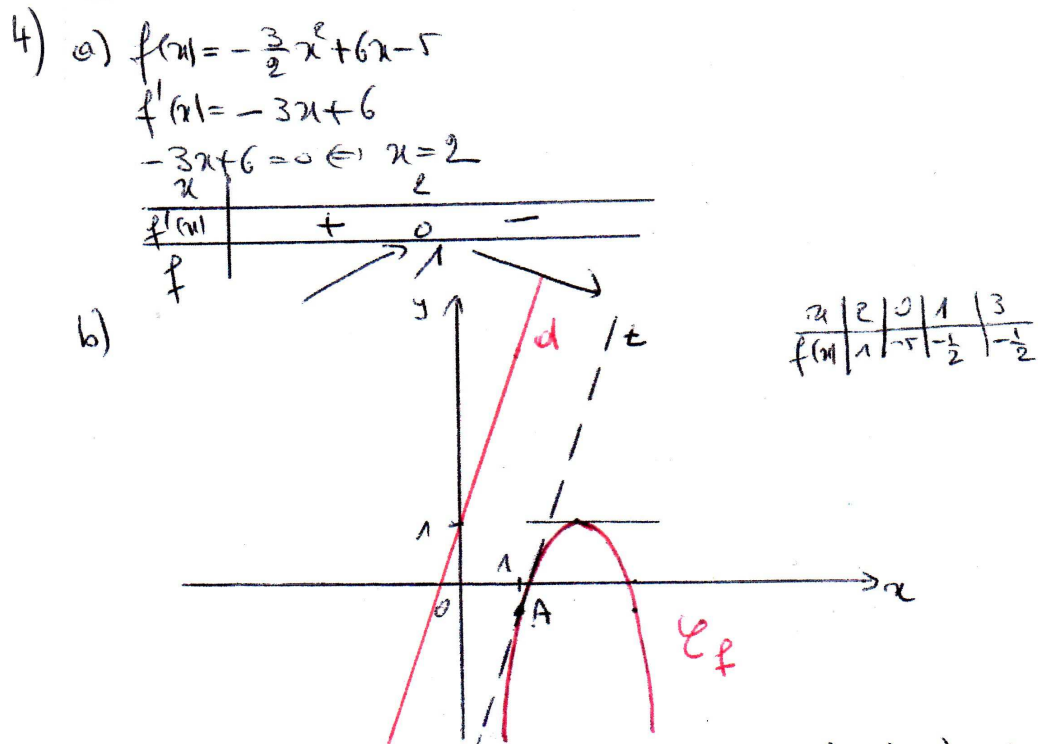 4) a) f(x) = -3/2 x² + 6x - 5
f'(x) = -3x + 6
-3x + 6 = 0 ⇔ x = 2
x 2
f'(x) + 0 -
f 1
b)
y
d
t
x 2 0 1 3
f(x) 1 -5 -1/2 -1/2
1
1
0 A
x
𝒞f